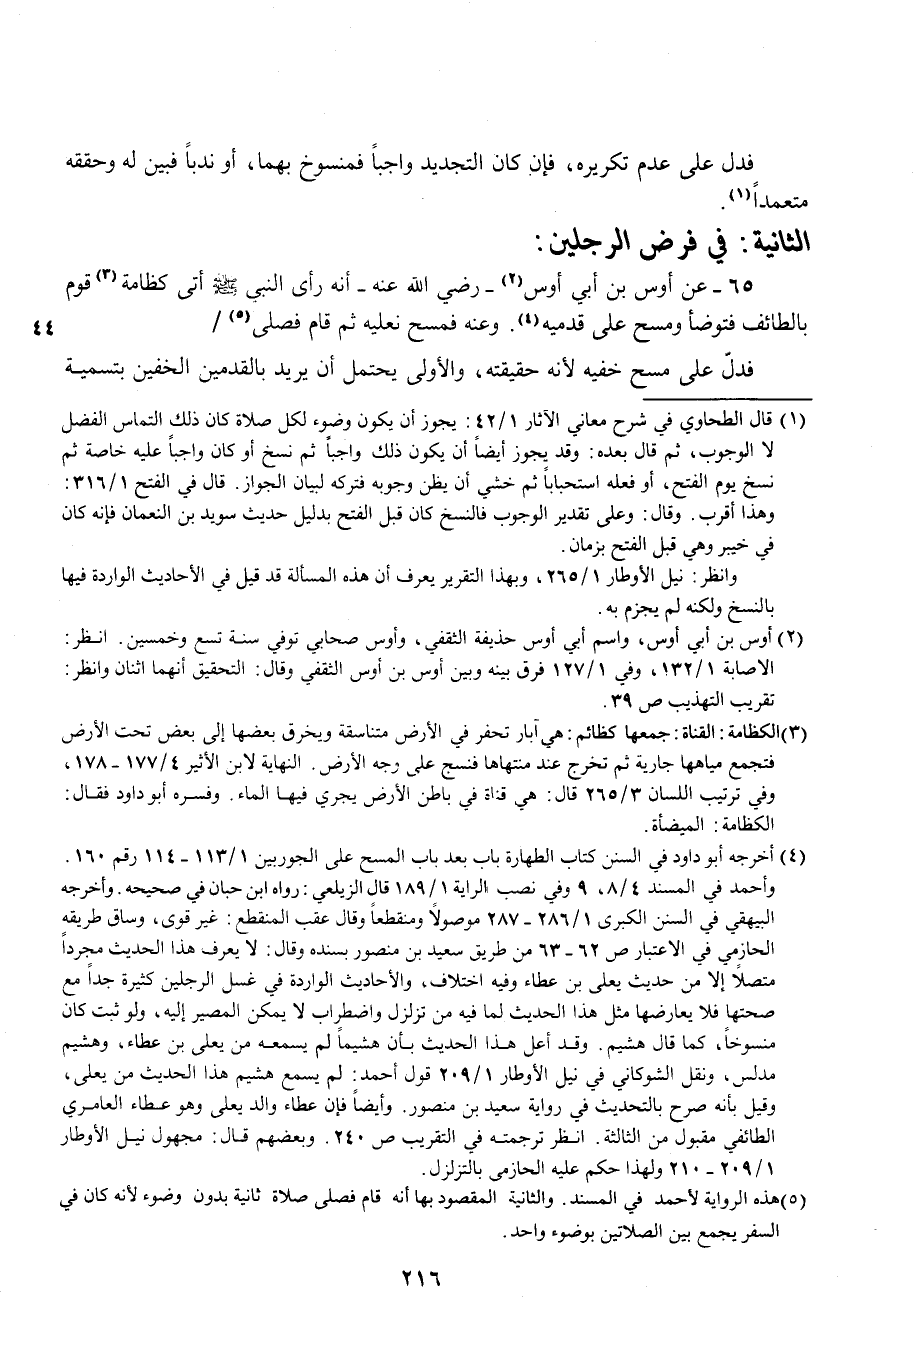 فدل على عدم تكريره، فإن كان التجديد واجباً فمنسوخ بهما، أو ندباً فبين له وحققه
متعمداً(١).
الثانية: في فرض الرجلين:
٦٥ - عن أوس بن أبي أوس(٢) - رضي الله عنه - أنه رأى النبي ﷺ أتى كظامة(٣) قوم
بالطائف فتوضأ ومسح على قدميه(٤). وعنه فمسح نعليه ثم قام فصلى(٥) /
٤٤
فدلّ على مسح خفيه لأنه حقيقته، والأولى يحتمل أن يريد بالقدمين الخفين بتسمية
(١) قال الطحاوي في شرح معاني الآثار ٤٢/١: يجوز أن يكون وضوء لكل صلاة كان ذلك التماس الفضل
لا الوجوب، ثم قال بعده: وقد يجوز أيضاً أن يكون ذلك واجباً ثم نسخ أو كان واجباً عليه خاصة ثم
نسخ يوم الفتح، أو فعله استحباباً ثم خشي أن يظن وجوبه فتركه لبيان الجواز. قال في الفتح ٣١٦/١:
وهذا أقرب. وقال: وعلى تقدير الوجوب فالنسخ كان قبل الفتح بدليل حديث سويد بن النعمان فإنه كان
في خيبر وهي قبل الفتح بزمان.
وانظر: نيل الأوطار ٢٦٥/١، وبهذا التقرير يعرف أن هذه المسألة قد قيل في الأحاديث الواردة فيها
بالنسخ ولكنه لم يجزم به.
(٢) أوس بن أبي أوس، واسم أبي أوس حذيفة الثقفي، وأوس صحابي توفي سنة تسع وخمسين. انظر:
الاصابة ١٣٢/١، وفي ١٢٧/١ فرق بينه وبين أوس بن أوس الثقفي وقال: التحقيق أنهما اثنان وانظر:
تقريب التهذيب ص ٣٩.
(٣) الكظامة: القناة: جمعها كظائم: هي آبار تحفر في الأرض متناسقة ويخرق بعضها إلى بعض تحت الأرض
فتجمع مياهها جارية ثم تخرج عند منتهاها فنسج على وجه الأرض. النهاية لابن الأثير ١٧٧/٤ - ١٧٨،
وفي ترتيب اللسان ٢٦٥/٣ قال: هي قناة في باطن الأرض يجري فيها الماء. وفسره أبو داود فقال:
الكظامة: الميضأة.
(٤) أخرجه أبو داود في السنن كتاب الطهارة باب بعد باب المسح على الجوربين ١١٣/١ - ١١٤ رقم ١٦٠.
وأحمد في المسند ٨/٤، ٩ وفي نصب الراية ١٨٩/١ قال الزيلعي: رواه ابن حبان في صحيحه. وأخرجه
البيهقي في السنن الكبرى ٢٨٦/١ - ٢٨٧ موصولاً ومنقطعاً وقال عقب المنقطع: غير قوى، وساق طريقه
الحازمي في الاعتبار ص ٦٢ - ٦٣ من طريق سعيد بن منصور بسنده وقال: لا يعرف هذا الحديث مجرداً
متصلاً إلا من حديث يعلى بن عطاء وفيه اختلاف، والأحاديث الواردة في غسل الرجلين كثيرة جداً مع
صحتها فلا يعارضها مثل هذا الحديث لما فيه من تزلزل واضطراب لا يمكن المصير إليه، ولو ثبت كان
منسوخاً، كما قال هشيم. وقد أعل هذا الحديث بأن هشيماً لم يسمعه من يعلى بن عطاء، وهشيم
مدلس، ونقل الشوكاني في نيل الأوطار ٢٠٩/١ قول أحمد: لم يسمع هشيم هذا الحديث من يعلى،
وقيل بأنه صرح بالتحديث في رواية سعيد بن منصور. وأيضاً فإن عطاء والد يعلى وهو عطاء العامري
الطائفي مقبول من الثالثة. انظر ترجمته في التقريب ص ٢٤٠. وبعضهم قال: مجهول نيل الأوطار
٢٠٩/١ - ٢١٠ ولهذا حكم عليه الحازمي بالتزلزل.
(٥) هذه الرواية لأحمد في المسند. والثانية المقصود بها أنه قام فصلى صلاة ثانية بدون وضوء لأنه كان في
السفر يجمع بين الصلاتين بوضوء واحد.
٢١٦